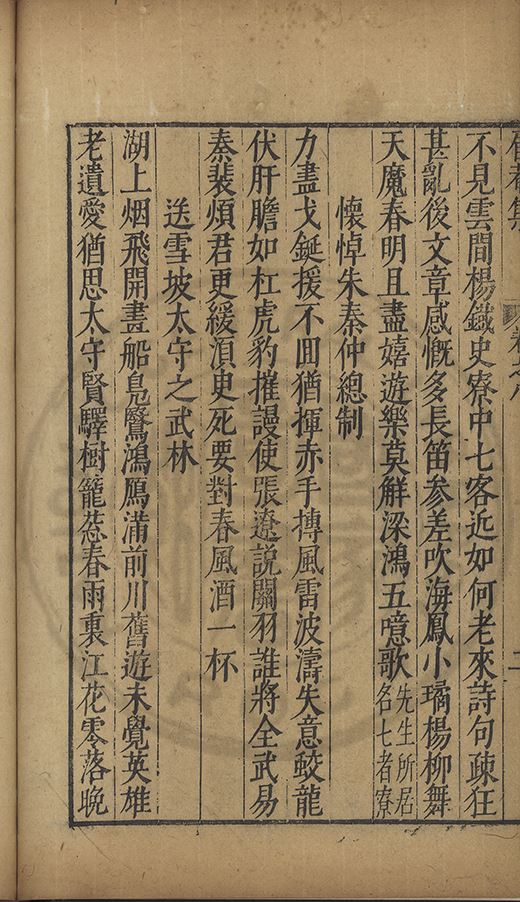 卷之八
二
不見雲間楊鐵史寮中七客近如何老來詩句疎狂
甚亂後文章感慨多長笛參差吹海鳳小璚楊柳舞
天魔春明且盡嬉遊樂莫觧梁鴻五噫歌先生所居
名七者寮
懷悼朱秦仲總制
力盡戈鋋援不囬猶揮赤手摶風雷波濤失意蛟龍
伏肝膽如杠虎豹摧謾使張遼説關羽誰將全武易
秦裴煩君更緩湏臾死要對春風酒一杯
送雪坡太守之武林
湖上烟飛開晝船鳬鷖鴻鴈滿前川舊遊未覺英雄
老遺愛猶思太守賢驛樹籠葱春雨裏江花零落晚